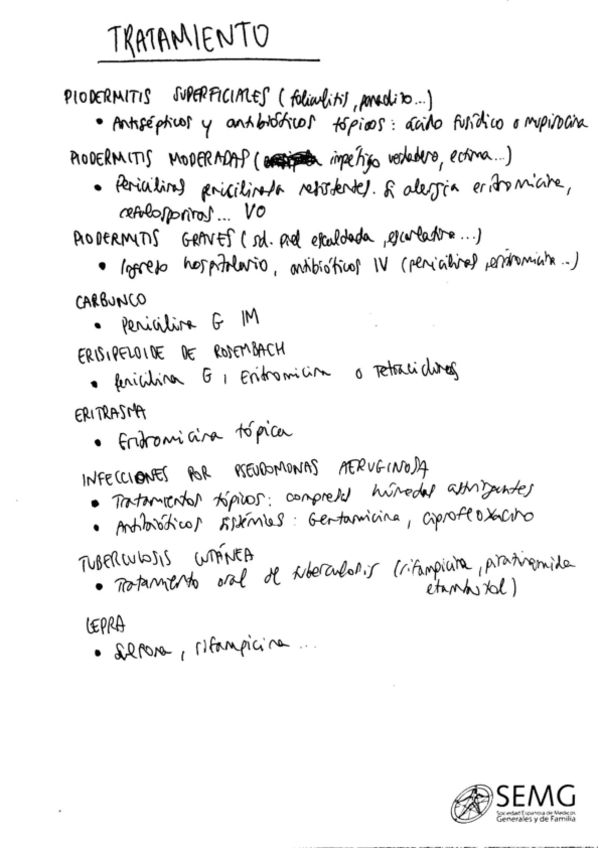 TRATAMIENTO
PIODERMITIS SUPERFICIALES (foliculitis, panadizo...)
• Antisépticos y antibióticos tópicos: ácido fusídico o mupirocina
PIODERMITIS MODERADAS ( impétigo verdadero, ectima...)
• Penicilinas penicilinasa resistentes. Si alergia eritromicina,
cefalosporinas... VO
PIODERMITIS GRAVES (sd. piel escaldada, escarlatina...)
• Ingreso hospitalario, antibióticos IV (penicilinas, eritromicina...)
CARBUNCO
• Penicilina G IM
ERISIPELOIDE DE ROSEMBACH
• Penicilina G, Eritromicina o Tetraciclinas
ERITRASMA
• Eritromicina tópica
INFECCIONES POR PSEUDOMONAS AERUGINOSA
• Tratamientos tópicos: compresas húmedas astringentes
• Antibióticos sistémicos: Gentamicina, ciprofloxacino
TUBERCULOSIS CUTÁNEA
• Tratamiento oral de tuberculosis (rifampicina, pirazinamida
etambutol)
LEPRA
• Sulfona, rifampicina ...
SEMG
Sociedad Española de Médicos
Generales y de Familia